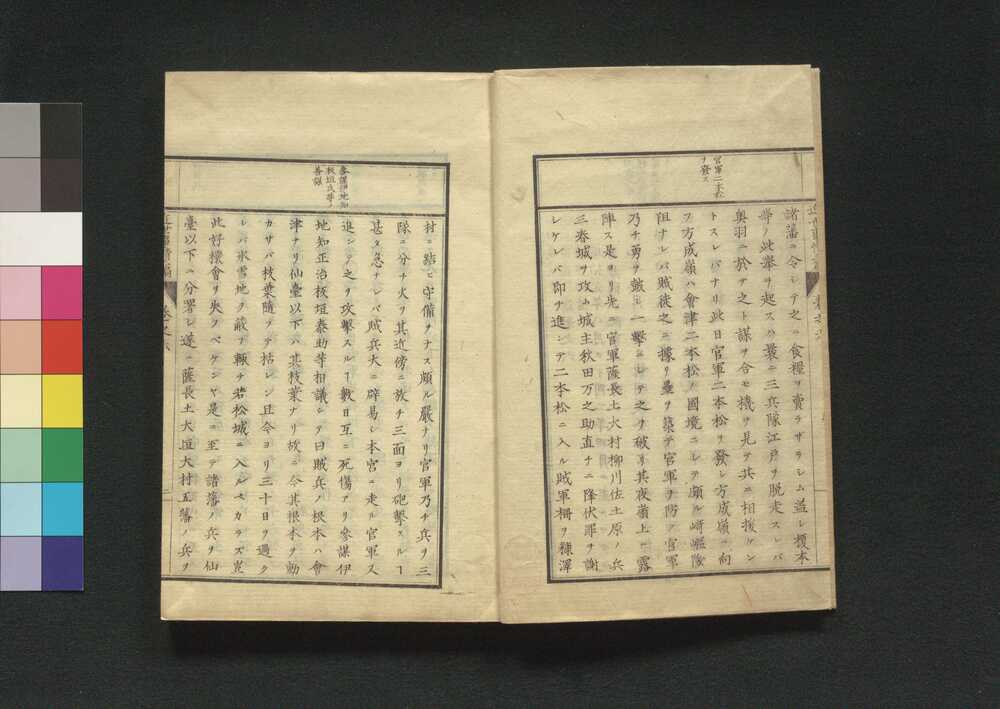 官軍二本松
ヲ發ス
諸藩ニ令シテ之ニ食糧ヲ賣ラザラシム蓋シ榎本
等ノ此擧ヲ起スハ曩ニ三兵隊江戸ヲ脱走スレバ
奥羽ニ於テ之ト謀ヲ合セ機ヲ見テ共ニ相援ケン
トスレバナリ此日官軍二本松ヲ發シ方成嶺ニ向
フ方成嶺ハ會津二本松ノ國境ニシテ頗ル﨑嶇險
阻ナレバ賊徒之ニ據リ壘ヲ築テ官軍ヲ防ク官軍
乃チ勇ヲ皷シ一擊ニシテ之ヲ破リ其夜嶺上ニ露
陣ス是ヨリ先ニ官軍薩長土大村柳川佐土原ノ兵
三春城ヲ攻ム城主秋田万之助直チニ降伏罪ヲ謝
シケレバ即チ進シテ二本松ニ入ル賊軍柵ヲ糠澤
村ニ結ヒ守備ヲナス頗ル嚴ナリ官軍乃チ兵ヲ三
隊ニ分チ火ヲ其近傍ニ放チ三面ヨリ砲擊スルヿ
甚タ急ナレバ賊兵大ニ辟易シ本宮ニ走ル官軍ス
進シテ之ヲ攻擊スルヿ數日互ニ死傷アリ參謀伊
地知正治板垣泰助等相議シテ曰賊兵ノ根本ハ會
津ナリ仙臺以下ハ其枝葉ナリ故ニ今其根本ヲ動
カサバ枝葉隨テ枯レン且今ヨリ三十日ヲ過ク
レバ氷雪地ヲ蔽ヒ輒チ若松城ニ入ルベカラズ豈
此好機會ヲ失フベケンヤ是ニ至テ諸藩ノ兵ヲ仙
臺以下ニ分署シ遂ニ薩長土大垣大村五藩ノ兵ヲ
參謀伊地知
板垣氏等ノ
善謀